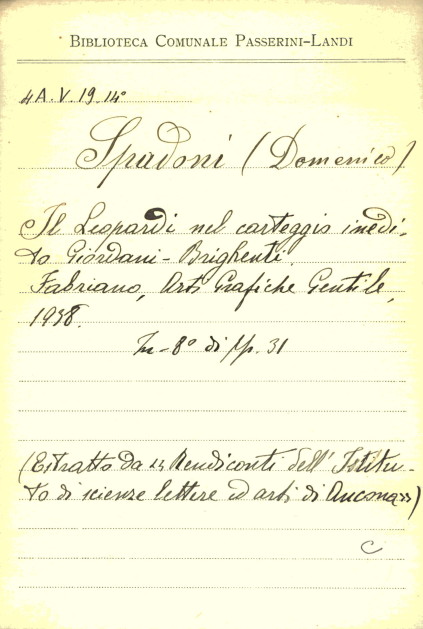 BIBLIOTECA COMUNALE PASSERINI-LANDI
4A.V.19.14°
Spadoni (Domenico)
Il Leopardi nel carteggio inedi-
to Giordani-Brighenti.
Fabriano, Arti Grafiche Gentile,
1938.
In-8° di pp. 31
(Estratto da << Rendiconti dell' Istitu-
to di scienze lettere ed arti di Ancona >>)
C